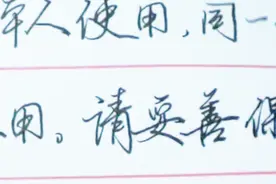 人使用,同一
用。请妥善保